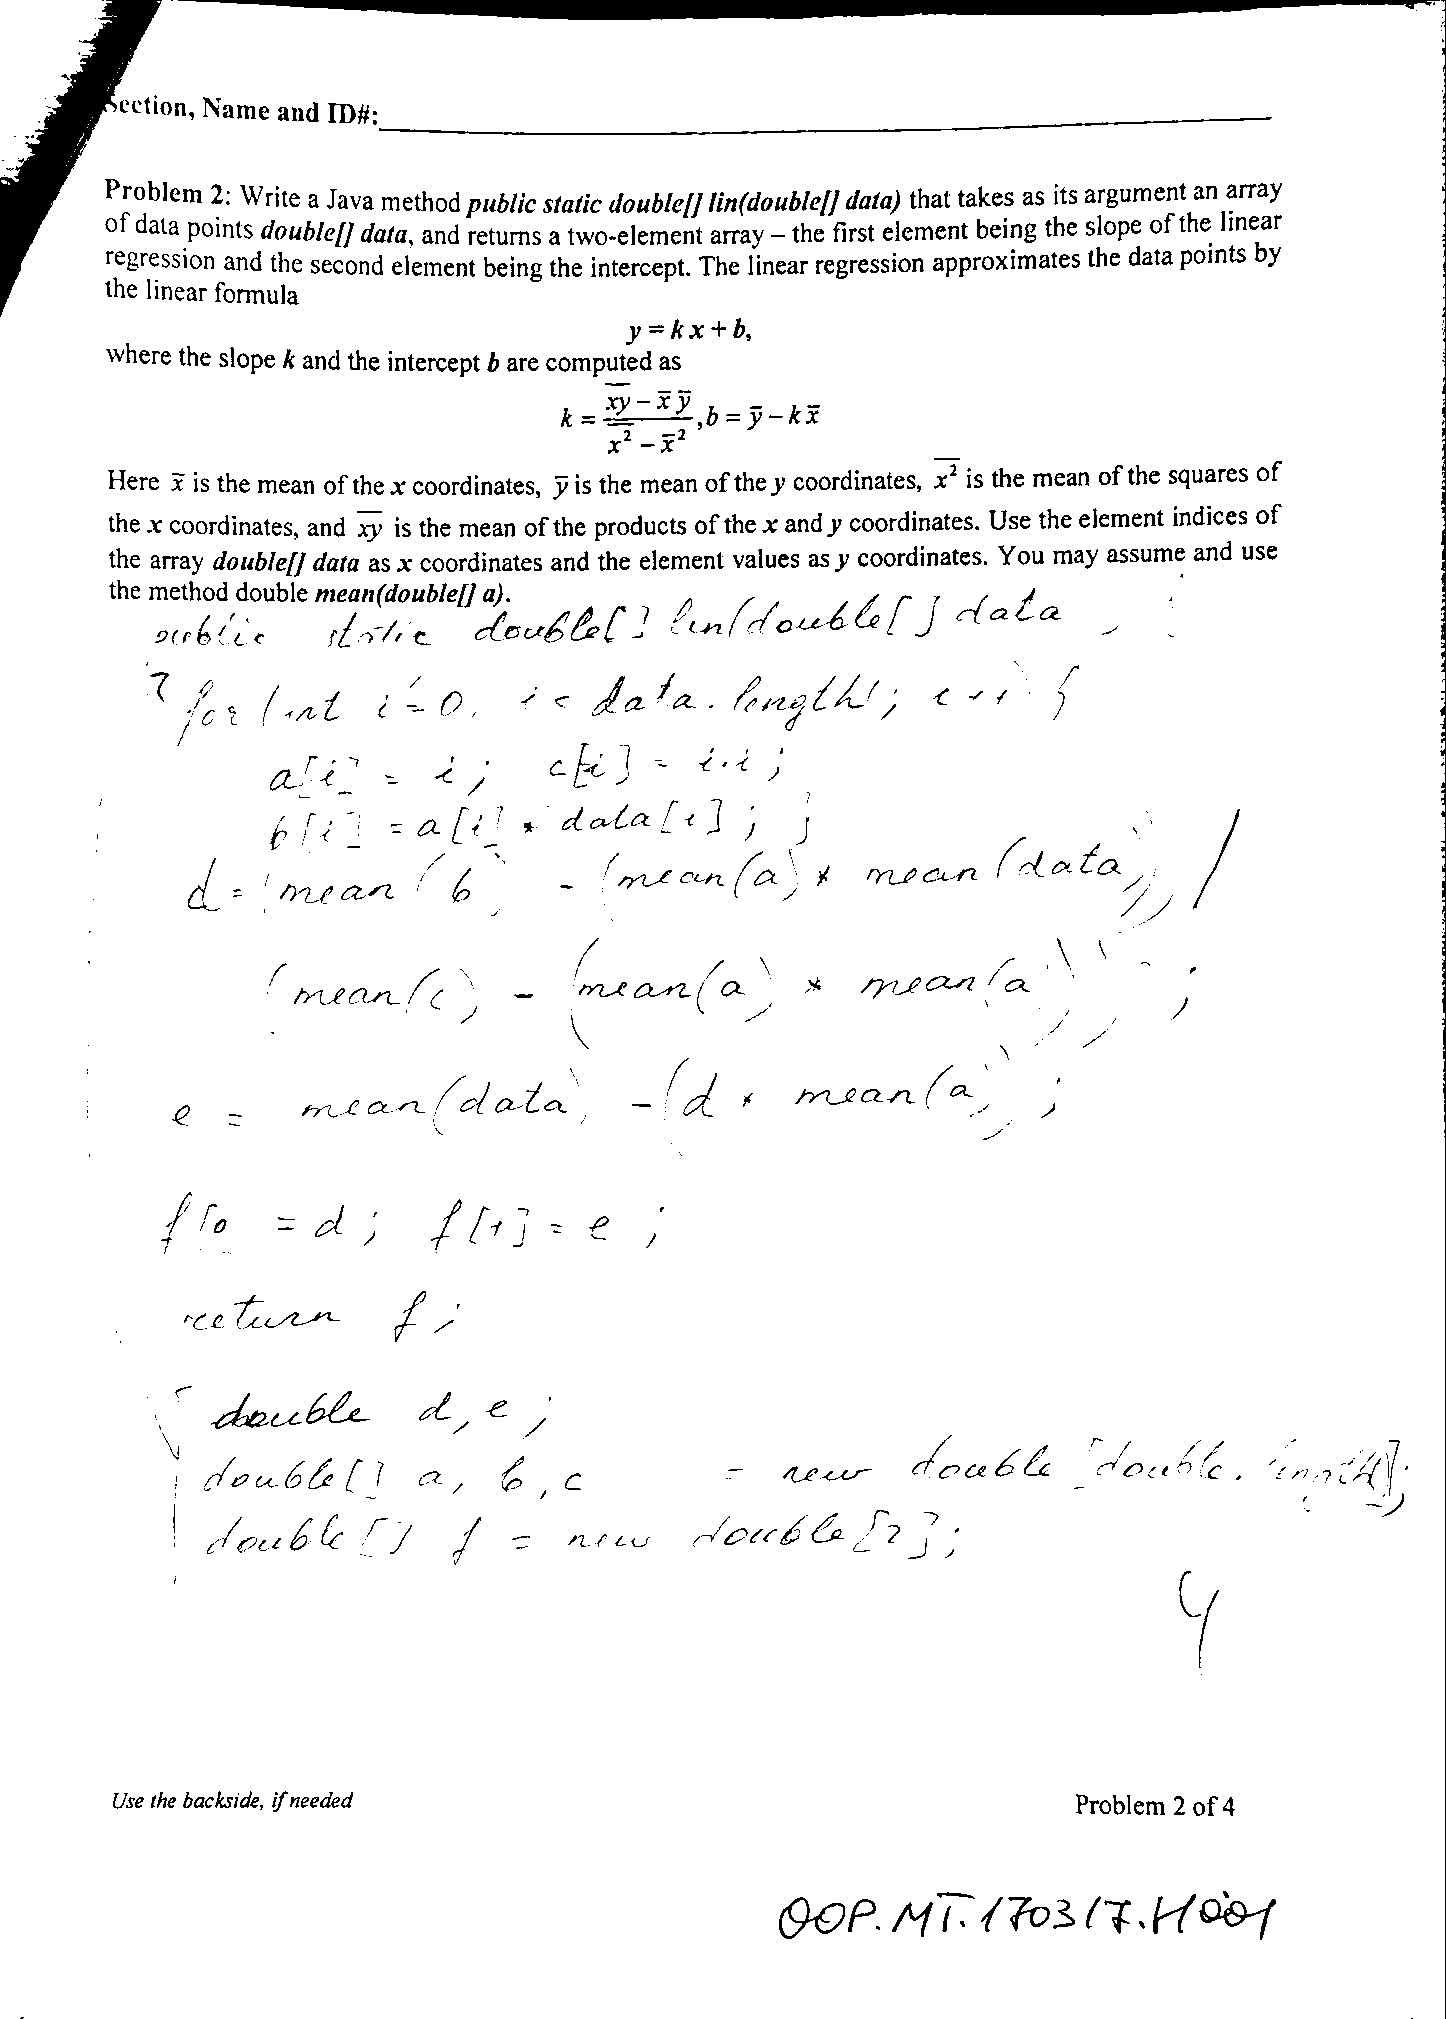 Section, Name and ID#:
Problem 2: Write a Java method public static double[] lin(double[] data) that takes as its argument an array
of data points double[] data, and returns a two-element array – the first element being the slope of the linear
regression and the second element being the intercept. The linear regression approximates the data points by
the linear formula
y = k x + b,
where the slope k and the intercept b are computed as
k = (x̅y̅ - x̄ ȳ) / (x̅²̅ - x̄²), b = ȳ - k x̄
Here x̄ is the mean of the x coordinates, ȳ is the mean of the y coordinates, x̅²̅ is the mean of the squares of
the x coordinates, and x̅y̅ is the mean of the products of the x and y coordinates. Use the element indices of
the array double[] data as x coordinates and the element values as y coordinates. You may assume and use
the method double mean(double[] a).
public static double[] lin(double[] data
for (int i=0. i < data.length; i++ {
a[i] = i; c[i] = i.i;
b[i] = a[i] * data[i]; }
d = (mean(b) - (mean(a) * mean(data))) /
(mean(c) - (mean(a) * mean(a))) ;
e = mean(data) - (d * mean(a)) ;
f[0 = d; f[1] = e ;
return f;
double d, e ;
double[] a, b, c = new double [double.length];
double[] f = new double[2];
4
Use the backside, if needed
Problem 2 of 4
OOP.MT.170317.H001